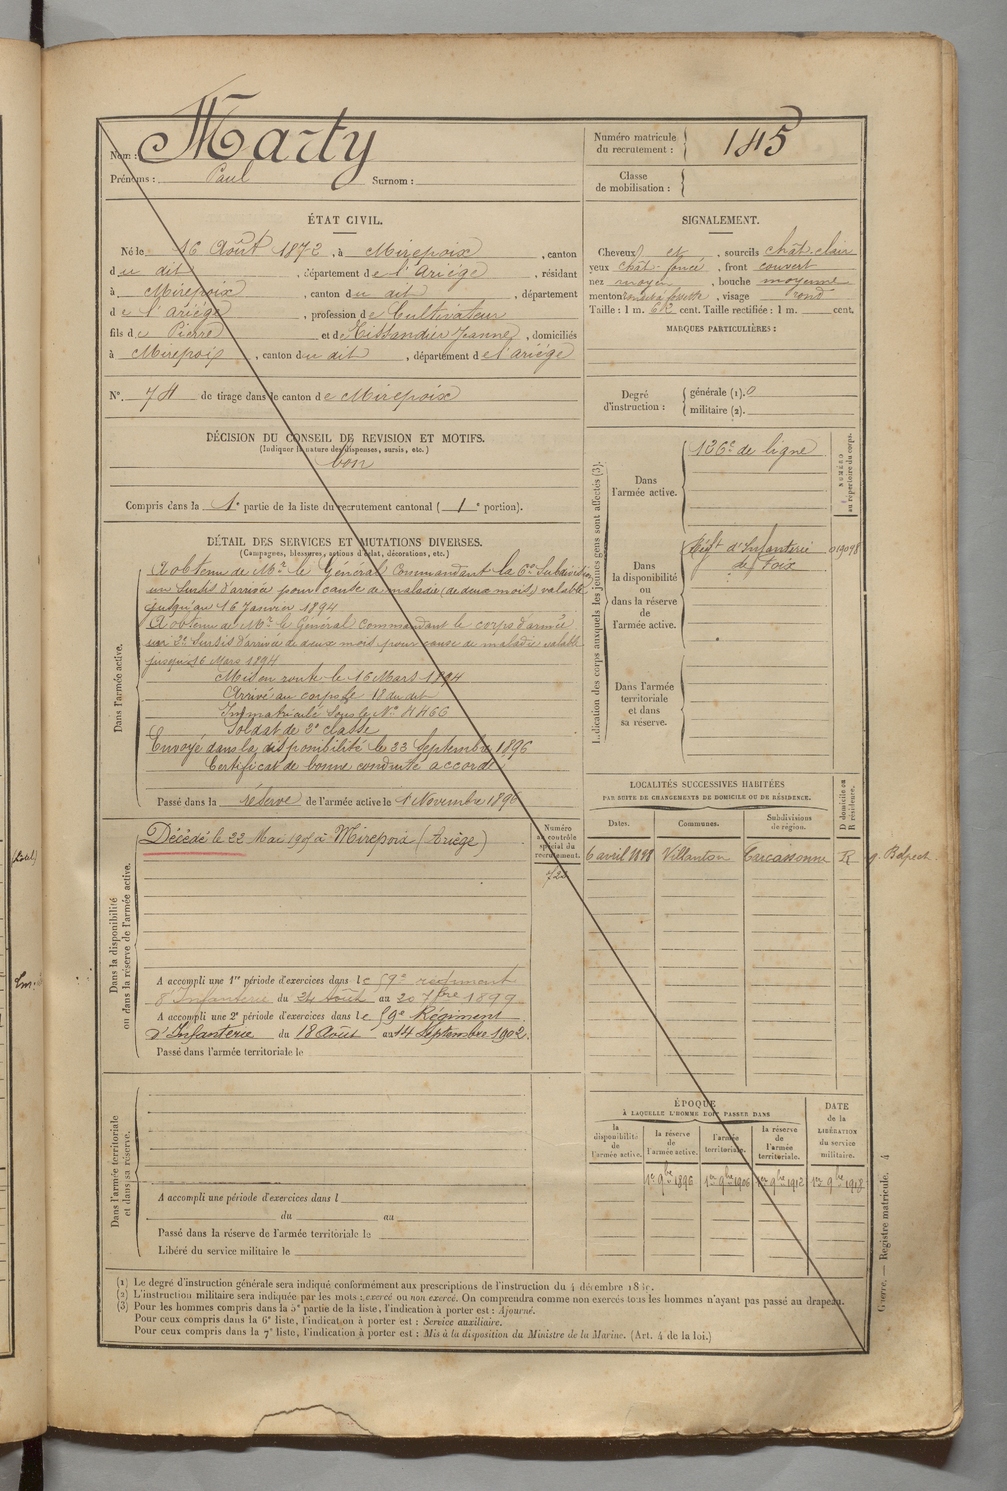 Nom : Marty
Prénoms : Paul Surnom :
Numéro matricule du recrutement : 145
Classe de mobilisation :
ÉTAT CIVIL.
Né le 16 Août 1872, à Mirepoix, canton
du dit, département de l'Ariége, résidant
à Mirepoix, canton du dit, département
de l'Ariége, profession de Cultivateur
fils de Pierre et de Tissandier Jeanne, domiciliés
à Mirepoix, canton du dit, département de l'Ariége
N° 74 de tirage dans le canton de Mirepoix
SIGNALEMENT.
Cheveux et, sourcils chât-clair
yeux chât-foncé, front couvert
nez moyen, bouche moyenne
menton fossette, visage rond
Taille : 1 m. 62 cent. Taille rectifiée : 1 m. cent.
MARQUES PARTICULIÈRES :
Degré d'instruction :
générale (1). 0
militaire (2).
DÉCISION DU CONSEIL DE REVISION ET MOTIFS.
(Indiquer la nature des dispenses, sursis, etc.)
bon
Compris dans la 1e partie de la liste du recrutement cantonal (1e portion).
DÉTAIL DES SERVICES ET MUTATIONS DIVERSES.
(Campagnes, blessures, actions d'éclat, décorations, etc.)
Dans l'armée active.
A obtenu de Mr le Général Commandant la 6e Subdivision
un Sursis d'arrivée pour cause de maladie (de deux mois) valable
jusqu'au 16 Janvier 1894
A obtenu de Mr le Général Commandant le corps d'armée
un 2e Sursis d'arrivée de deux mois pour cause de maladie valable
jusqu'à 16 Mars 1894
Mis en route le 16 Mars 1894
Arrivé au corps le 18 du dit
Immatriculé sous le N° 4466
Soldat de 2e classe
Envoyé dans la disponibilité le 23 Septembre 1896
Certificat de bonne conduite accordé
Passé dans la réserve de l'armée active le 1 Novembre 1896
Indication des corps auxquels les jeunes gens sont affectés (3).
NUMÉRO au répertoire du corps.
Dans l'armée active.
126e de ligne
Dans la disponibilité ou dans la réserve de l'armée active.
Régt d'Infanterie 01908
de Foix
Dans l'armée territoriale et dans sa réserve.
Dans la disponibilité ou dans la réserve de l'armée active.
Numéro au contrôle spécial du recrutement.
Décédé le 22 Mai à Mirepoix (Ariège)
A accompli une 1re période d'exercices dans le 59e régiment
d'Infanterie du 24 Août au 20 7bre 1899
A accompli une 2e période d'exercices dans le 59e Régiment
d'Infanterie du 18 Août au 14 Septembre 1902.
Passé dans l'armée territoriale le
LOCALITÉS SUCCESSIVES HABITÉES
PAR SUITE DE CHANGEMENTS DE DOMICILE OU DE RÉSIDENCE.
D domicile ou R résidence.
Dates. Communes. Subdivisions de région.
6 avril 1898 Villautou Carcassonne R g. Belpech.
Dans l'armée territoriale et dans sa réserve.
A accompli une période d'exercices dans l
du au
Passé dans la réserve de l'armée territoriale le
Libéré du service militaire le
ÉPOQUE
À LAQUELLE L'HOMME DOIT PASSER DANS
la disponibilité de l'armée active.
la réserve de l'armée active.
l'armée territoriale.
la réserve de l'armée territoriale.
DATE de la LIBÉRATION du service militaire.
1er 9bre 1896 1er 9bre 1906 1er 9bre 1912 1er 9bre 1918
Guerre. — Registre matricule. 4
(1) Le degré d'instruction générale sera indiqué conformément aux prescriptions de l'instruction du 4 décembre
(2) L'instruction militaire sera indiquée par les mots : exercé ou non exercé. On comprendra comme non exercés tous les hommes n'ayant pas passé au drapeau.
(3) Pour les hommes compris dans la 5e partie de la liste, l'indication à porter est : Ajourné.
Pour ceux compris dans la 6e liste, l'indication à porter est : Service auxiliaire.
Pour ceux compris dans la 7e liste, l'indication à porter est : Mis à la disposition du Ministre de la Marine. (Art. 4 de la loi.)